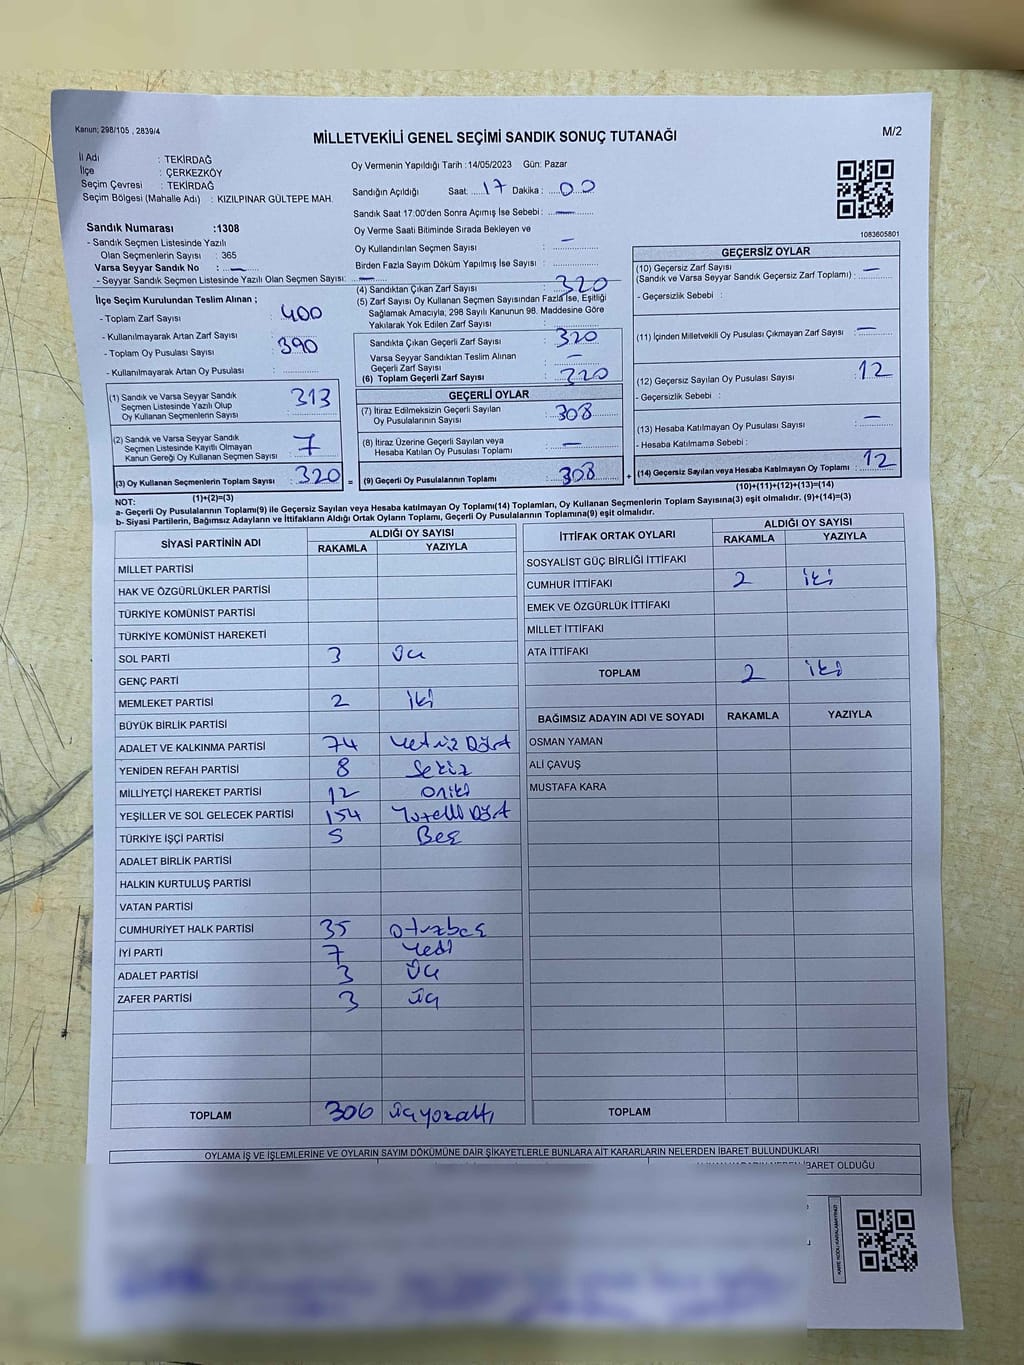 Kanun; 298/105 , 2839/4
MİLLETVEKİLİ GENEL SEÇİMİ SANDIK SONUÇ TUTANAĞI
M/2
İl Adı : TEKİRDAĞ
İlçe : ÇERKEZKÖY
Seçim Çevresi : TEKİRDAĞ
Seçim Bölgesi (Mahalle Adı) : KIZILPINAR GÜLTEPE MAH.
Oy Vermenin Yapıldığı Tarih :14/05/2023 Gün: Pazar
Sandığın Açıldığı Saat:.....17 Dakika :....00
Sandık Saat 17:00'den Sonra Açımış İse Sebebi : —
Oy Verme Saati Bitiminde Sırada Bekleyen ve
Oy Kullandırılan Seçmen Sayısı : —
Birden Fazla Sayım Döküm Yapılmış İse Sayısı :
1083605801
Sandık Numarası :1308
- Sandık Seçmen Listesinde Yazılı
Olan Seçmenlerin Sayısı : 365
Varsa Seyyar Sandık No : —
- Seyyar Sandık Seçmen Listesinde Yazılı Olan Seçmen Sayısı: —
İlçe Seçim Kurulundan Teslim Alınan ;
- Toplam Zarf Sayısı : 400
- Kullanılmayarak Artan Zarf Sayısı :
- Toplam Oy Pusulası Sayısı : 390
- Kullanılmayarak Artan Oy Pusulası :
(1) Sandık ve Varsa Seyyar Sandık
Seçmen Listesinde Yazılı Olup
Oy Kullanan Seçmenlerin Sayısı : 313
(2) Sandık ve Varsa Seyyar Sandık
Seçmen Listesinde Kayıtlı Olmayan
Kanun Gereği Oy Kullanan Seçmen Sayısı : 7
(3) Oy Kullanan Seçmenlerin Toplam Sayısı : 320 =
(1)+(2)=(3)
(4) Sandıktan Çıkan Zarf Sayısı : 320
(5) Zarf Sayısı Oy Kullanan Seçmen Sayısından Fazla İse, Eşitliği
Sağlamak Amacıyla, 298 Sayılı Kanunun 98. Maddesine Göre
Yakılarak Yok Edilen Zarf Sayısı :
Sandıkta Çıkan Geçerli Zarf Sayısı : 320
Varsa Seyyar Sandıktan Teslim Alınan
Geçerli Zarf Sayısı : —
(6) Toplam Geçerli Zarf Sayısı : 320
GEÇERLİ OYLAR
(7) İtiraz Edilmeksizin Geçerli Sayılan
Oy Pusulalarının Sayısı : 308
(8) İtiraz Üzerine Geçerli Sayılan veya
Hesaba Katılan Oy Pusulası Toplamı : —
(9) Geçerli Oy Pusulalarının Toplamı : 308 +
GEÇERSİZ OYLAR
(10) Geçersiz Zarf Sayısı
(Sandık ve Varsa Seyyar Sandık Geçersiz Zarf Toplamı) : —
- Geçersizlik Sebebi :
(11) İçinden Milletvekili Oy Pusulası Çıkmayan Zarf Sayısı : —
(12) Geçersiz Sayılan Oy Pusulası Sayısı : 12
- Geçersizlik Sebebi :
(13) Hesaba Katılmayan Oy Pusulası Sayısı : —
- Hesaba Katılmama Sebebi :
(14) Geçersiz Sayılan veya Hesaba Katılmayan Oy Toplamı : 12
(10)+(11)+(12)+(13)=(14)
NOT:
a- Geçerli Oy Pusulalarının Toplamı(9) ile Geçersiz Sayılan veya Hesaba katılmayan Oy Toplamı(14) Toplamları, Oy Kullanan Seçmenlerin Toplam Sayısına(3) eşit olmalıdır. (9)+(14)=(3)
b- Siyasi Partilerin, Bağımsız Adayların ve İttifakların Aldığı Ortak Oyların Toplamı, Geçerli Oy Pusulalarının Toplamına(9) eşit olmalıdır.
SİYASİ PARTİNİN ADI ALDIĞI OY SAYISI
RAKAMLA YAZIYLA
MİLLET PARTİSİ
HAK VE ÖZGÜRLÜKLER PARTİSİ
TÜRKİYE KOMÜNİST PARTİSİ
TÜRKİYE KOMÜNİST HAREKETİ
SOL PARTİ 3 Üç
GENÇ PARTİ
MEMLEKET PARTİSİ 2 iki
BÜYÜK BİRLİK PARTİSİ
ADALET VE KALKINMA PARTİSİ 74 Yetmiz Dört
YENİDEN REFAH PARTİSİ 8 Sekiz
MİLLİYETÇİ HAREKET PARTİSİ 12 Oniki
YEŞİLLER VE SOL GELECEK PARTİSİ 154 Yüzelli Dört
TÜRKİYE İŞÇİ PARTİSİ 5 Beş
ADALET BİRLİK PARTİSİ
HALKIN KURTULUŞ PARTİSİ
VATAN PARTİSİ
CUMHURİYET HALK PARTİSİ 35 otuzbeş
İYİ PARTİ 7 Yedi
ADALET PARTİSİ 3 Üç
ZAFER PARTİSİ 3 üç
TOPLAM 306 üçyüzaltı
İTTİFAK ORTAK OYLARI ALDIĞI OY SAYISI
RAKAMLA YAZIYLA
SOSYALİST GÜÇ BİRLİĞİ İTTİFAKI
CUMHUR İTTİFAKI 2 iki
EMEK VE ÖZGÜRLÜK İTTİFAKI
MİLLET İTTİFAKI
ATA İTTİFAKI
TOPLAM 2 iki
BAĞIMSIZ ADAYIN ADI VE SOYADI RAKAMLA YAZIYLA
OSMAN YAMAN
ALİ ÇAVUŞ
MUSTAFA KARA
TOPLAM
OYLAMA İŞ VE İŞLEMLERİNE VE OYLARIN SAYIM DÖKÜMÜNE DAİR ŞİKAYETLERLE BUNLARA AİT KARARLARIN NELERDEN İBARET BULUNDUKLARI
İBARET OLDUĞU
KARE KODU KARALAMAYINIZ!